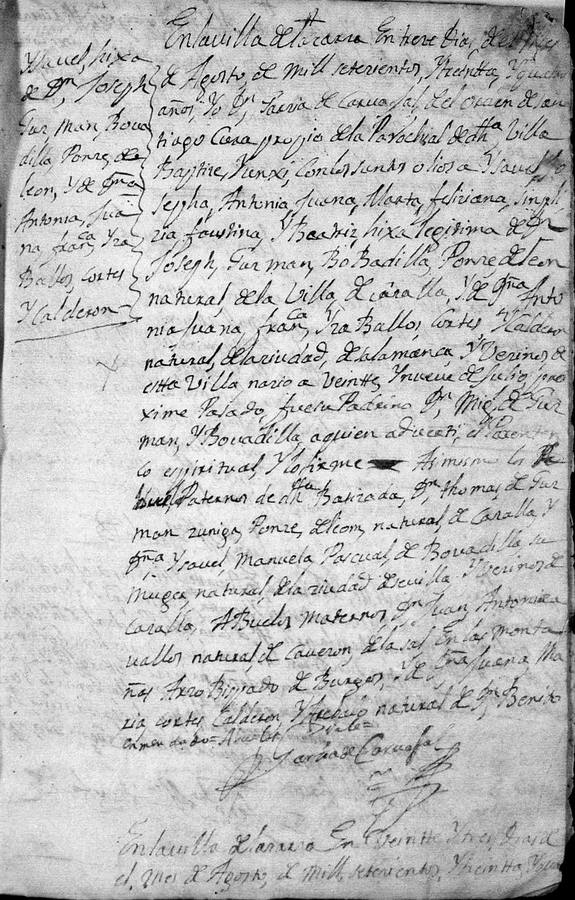 Ysavel, hixa
de Dn. Joseph
Guzman, Bova
dilla, Ponze, de
leon, Y de Dña
Antonia, Jua
na franca Zra
Ballos, Cortes
Y Calderon
En la villa de en trece Dias, del mes
de Agosto, de Mill, setezientos, Ytreintta, Y quatro
años, Yo Dn. Garzia de Carvajal, del orden de san
tiago Cura propio de la Parochial de dha Villa
Baptize, Y Con los santos olios a Ysavel, Jo
sepha, Antonia Juana, Marta, feliziana, Simpli
zia faustina, Y Beatriz hixa lexitima de Dn
Joseph, Guzman, BoBadilla, Ponze de leon
natural de la Villa, de Cazalla, Y de Dña Anto
nia Juana franca Zra Ballos Cortes Y Calderon
natural, de la ziudad, de salamanca, Y Vezinos de
estta Villa nazio a Veintte, Y nueve de Julio, pro
ximo Pasado, fue su Padrino Dn. Migl. de Guz
man, Y Bovadilla, a quien advertti, el Parentes
co espiritual, Y lo firme Asimismo los
Paternos de dha Batizada, Dn. thomas de Guz
man zuniga, Ponze, de leon, natural, de Cazalla Y
Dña, Ysavel, Manuela Pascual, de Bovadilla su
muger natural, de la ziudad de sevilla Y Vezinos de
Cazalla, ABuelos Maternos, Dn. Juan, Antonio Zra
vallos natural, de Caveron, de la sal En las Monta
ñas Arzobispado de Burgos, Y de Dña Juana Ma
ria Cortes Calderon, natural de Sn. Benito
enmendado=
Garzia de Carvajal
En la villa de En Veintte Y tres Dias de
el mes de Agosto, de Mill, setezientos, Ytreintta, Y